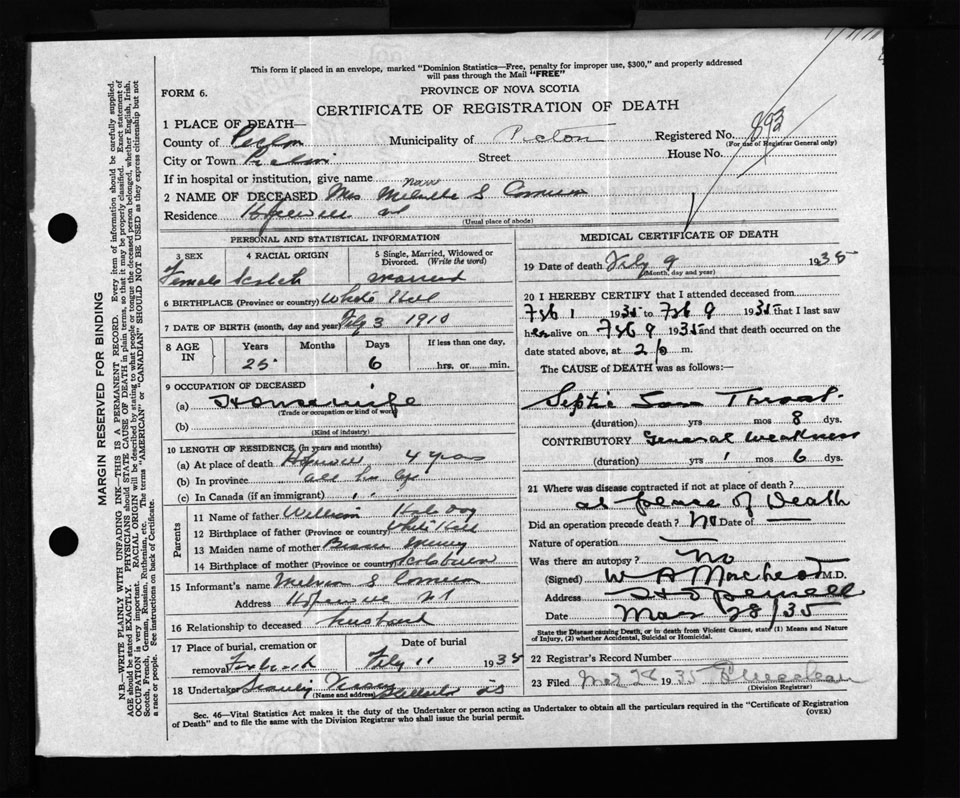 This form if placed in an envelope, marked "Dominion Statistics—Free, penalty for improper use, $300," and properly addressed
will pass through the Mail "FREE"
FORM 6.
PROVINCE OF NOVA SCOTIA
CERTIFICATE OF REGISTRATION OF DEATH
1 PLACE OF DEATH—
County of Municipality of Pictou Registered No. 893
(For use of Registrar General only)
City or Town Street House No.
If in hospital or institution, give name
2 NAME OF DECEASED Mrs S
Residence Hopewell NS
(Usual place of abode)
PERSONAL AND STATISTICAL INFORMATION
3 SEX 4 RACIAL ORIGIN 5 Single, Married, Widowed or Divorced. (Write the word)
Female Scotch Married
6 BIRTHPLACE (Province or country) White Hill
7 DATE OF BIRTH (month, day and year) 3 1910
8 AGE IN Years Months Days If less than one day,
25 6 hrs. or min.
9 OCCUPATION OF DECEASED
(a) Housewife
(Trade or occupation or kind of work)
(b)
(Kind of industry)
10 LENGTH OF RESIDENCE (in years and months)
(a) At place of death Hopewell 4 years
(b) In province all her life
(c) In Canada (if an immigrant) " "
Parents
11 Name of father William
12 Birthplace of father (Province or country) White Hill
13 Maiden name of mother
14 Birthplace of mother (Province or country)
15 Informant's name S
Address Hopewell NS
16 Relationship to deceased Husband
17 Place of burial, cremation or removal Date of burial
11 1935
18 Undertaker
(Name and address)
MEDICAL CERTIFICATE OF DEATH
19 Date of death 9 1935
(Month, day and year)
20 I HEREBY CERTIFY that I attended deceased from
Feb 1 1935 to Feb 9 1935 that I last saw
her alive on Feb 9 1935 and that death occurred on the
date stated above, at 2 m.
The CAUSE of DEATH was as follows:—
Septic Sore Throat.
(duration) yrs mos 8 dys.
CONTRIBUTORY General Weakness
(duration) yrs 1 mos 6 dys.
21 Where was disease contracted if not at place of death?
at place of Death
Did an operation precede death? No Date of —
Nature of operation —
Was there an autopsy? No
(Signed) W A M.D.
Address Hopewell
Date Mar 28/35
State the Disease causing Death, or in death from Violent Causes, state (1) Means and Nature
of Injury, (2) whether Accidental, Suicidal or Homicidal.
22 Registrar's Record Number
23 Filed Mar 28 1935
(Division Registrar)
Sec. 46—Vital Statistics Act makes it the duty of the Undertaker or person acting as Undertaker to obtain all the particulars required in the "Certificate of Registration
of Death" and to file the same with the Division Registrar who shall issue the burial permit.
(OVER)
MARGIN RESERVED FOR BINDING
N.B.—WRITE PLAINLY WITH UNFADING INK—THIS IS A PERMANENT RECORD. Every item of information should be carefully supplied.
AGE should be stated EXACTLY. PHYSICIANS should STATE CAUSE OF DEATH in plain terms, so that it may be properly classified. Exact statement of
OCCUPATION is very important. RACIAL ORIGIN will be described by stating to what people or tongue the deceased person belonged, whether English, Irish,
Scotch, French, German, Russian, Ruthenian, etc. The terms "AMERICAN" or "CANADIAN" SHOULD NOT BE USED as they express citizenship but not
a race or people. See instructions on back of Certificate.